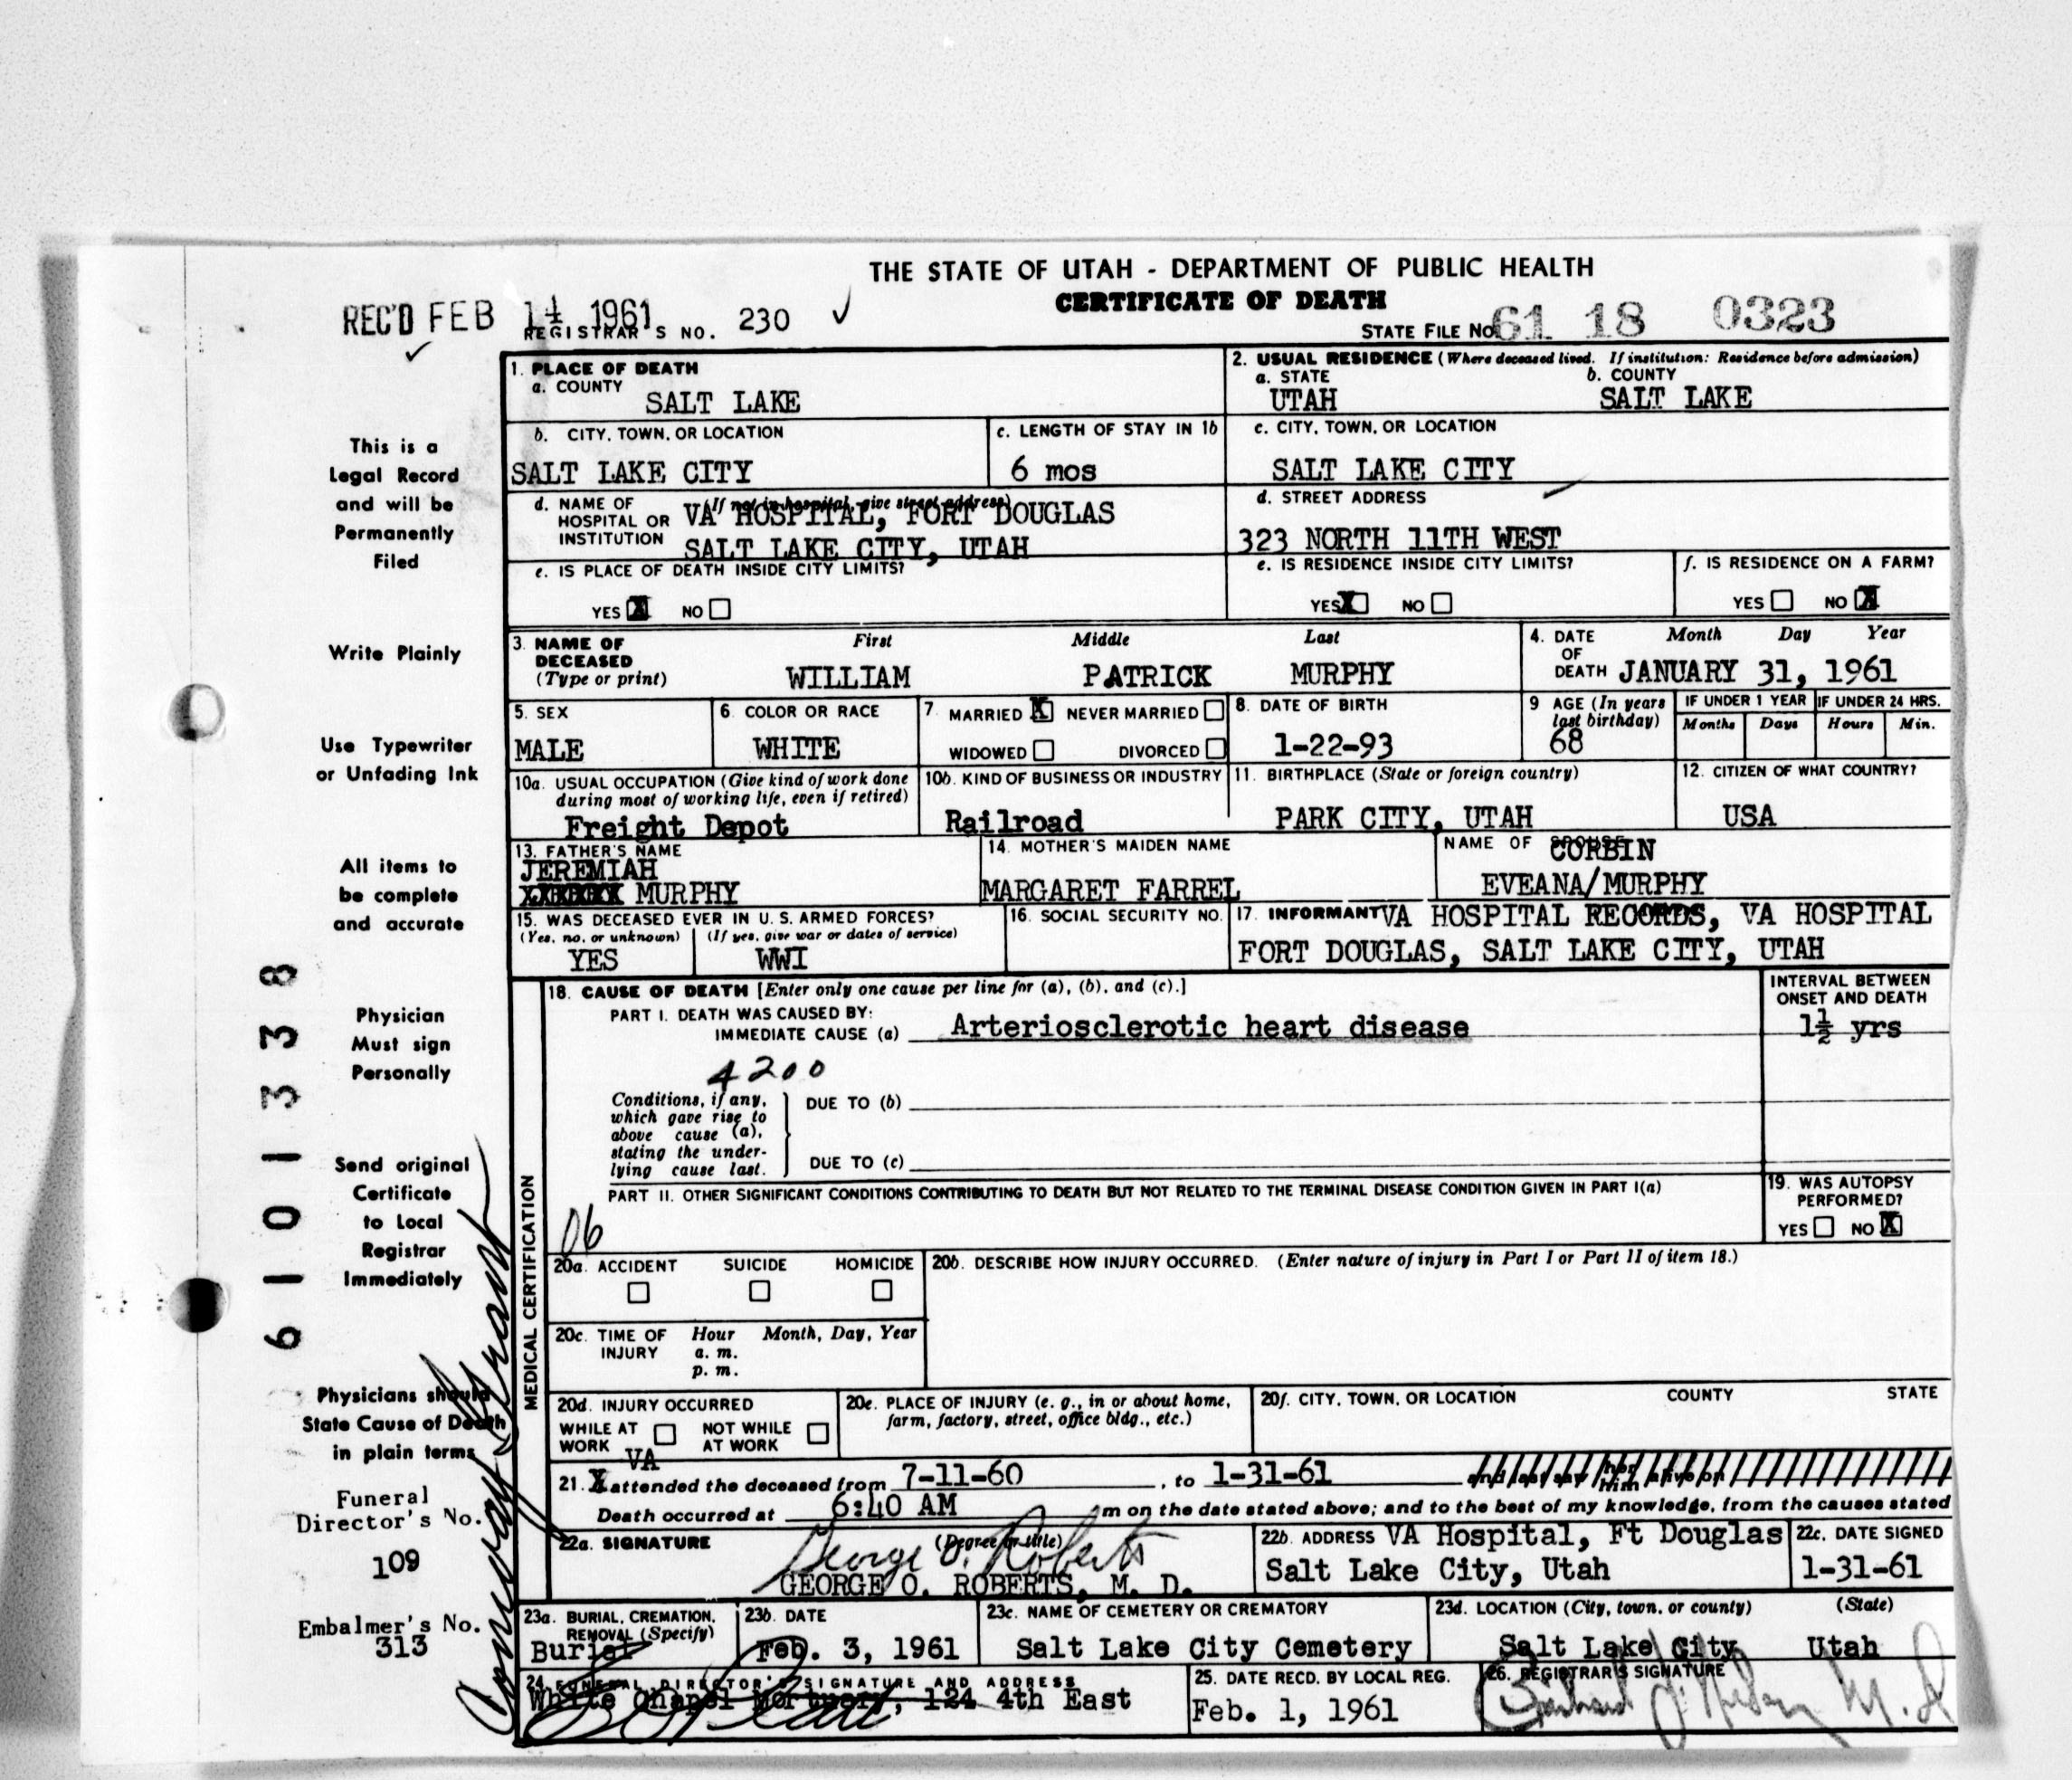 THE STATE OF UTAH - DEPARTMENT OF PUBLIC HEALTH
CERTIFICATE OF DEATH
REC'D FEB 14 1961 REGISTRAR'S NO. 230 ✓
STATE FILE No. 61 18 0323
1. PLACE OF DEATH
a. COUNTY
SALT LAKE
2. USUAL RESIDENCE (Where deceased lived. If institution: Residence before admission)
a. STATE b. COUNTY
UTAH SALT LAKE
b. CITY, TOWN, OR LOCATION
SALT LAKE CITY
c. LENGTH OF STAY IN 1b
6 mos
c. CITY, TOWN, OR LOCATION
SALT LAKE CITY
d. NAME OF HOSPITAL OR INSTITUTION (If not in hospital, give street address)
VA HOSPITAL, FORT DOUGLAS
SALT LAKE CITY, UTAH
d. STREET ADDRESS
323 NORTH 11TH WEST
e. IS PLACE OF DEATH INSIDE CITY LIMITS?
YES X NO
e. IS RESIDENCE INSIDE CITY LIMITS?
YES X NO
f. IS RESIDENCE ON A FARM?
YES NO X
3. NAME OF DECEASED (Type or print)
First Middle Last
WILLIAM PATRICK MURPHY
4. DATE OF DEATH Month Day Year
JANUARY 31, 1961
5. SEX
MALE
6. COLOR OR RACE
WHITE
7. MARRIED X NEVER MARRIED
WIDOWED DIVORCED
8. DATE OF BIRTH
1-22-93
9 AGE (In years last birthday)
68
IF UNDER 1 YEAR IF UNDER 24 HRS.
Months Days Hours Min.
10a. USUAL OCCUPATION (Give kind of work done during most of working life, even if retired)
Freight Depot
10b. KIND OF BUSINESS OR INDUSTRY
Railroad
11. BIRTHPLACE (State or foreign country)
PARK CITY, UTAH
12. CITIZEN OF WHAT COUNTRY?
USA
13. FATHER'S NAME
JEREMIAH
MURPHY
14. MOTHER'S MAIDEN NAME
MARGARET FARREL
NAME OF SPOUSE
CORBIN
EVEANA/MURPHY
15. WAS DECEASED EVER IN U. S. ARMED FORCES?
(Yes, no, or unknown) (If yes, give war or dates of service)
YES WWI
16. SOCIAL SECURITY NO.
17. INFORMANT VA HOSPITAL RECORDS, VA HOSPITAL
FORT DOUGLAS, SALT LAKE CITY, UTAH
MEDICAL CERTIFICATION
18. CAUSE OF DEATH [Enter only one cause per line for (a), (b), and (c).]
PART I. DEATH WAS CAUSED BY:
IMMEDIATE CAUSE (a) Arteriosclerotic heart disease
INTERVAL BETWEEN ONSET AND DEATH
1½ yrs
4200
Conditions, if any, which gave rise to above cause (a), stating the underlying cause last.
DUE TO (b)
DUE TO (c)
PART II. OTHER SIGNIFICANT CONDITIONS CONTRIBUTING TO DEATH BUT NOT RELATED TO THE TERMINAL DISEASE CONDITION GIVEN IN PART I(a)
06
19. WAS AUTOPSY PERFORMED?
YES NO X
20a. ACCIDENT SUICIDE HOMICIDE
20b. DESCRIBE HOW INJURY OCCURRED. (Enter nature of injury in Part I or Part II of item 18.)
20c. TIME OF INJURY Hour Month, Day, Year
a. m.
p. m.
20d. INJURY OCCURRED
WHILE AT WORK NOT WHILE AT WORK
20e. PLACE OF INJURY (e. g., in or about home, farm, factory, street, office bldg., etc.)
20f. CITY, TOWN, OR LOCATION COUNTY STATE
VA
21. X attended the deceased from 7-11-60, to 1-31-61 and last saw her him alive on
Death occurred at 6:40 AM m on the date stated above; and to the best of my knowledge, from the causes stated
22a. SIGNATURE (Degree or title)
George O. Roberts
GEORGE O. ROBERTS, M. D.
22b. ADDRESS VA Hospital, Ft Douglas
Salt Lake City, Utah
22c. DATE SIGNED
1-31-61
23a. BURIAL, CREMATION, REMOVAL (Specify)
Burial
23b. DATE
Feb. 3, 1961
23c. NAME OF CEMETERY OR CREMATORY
Salt Lake City Cemetery
23d. LOCATION (City, town, or county) (State)
Salt Lake City Utah
24. FUNERAL DIRECTOR'S SIGNATURE AND ADDRESS
White Chapel Mortuary, 124 4th East
25. DATE RECD. BY LOCAL REG.
Feb. 1, 1961
26. REGISTRAR'S SIGNATURE
M.D
This is a
Legal Record
and will be
Permanently
Filed
Write Plainly
Use Typewriter
or Unfading Ink
All items to
be complete
and accurate
Physician
Must sign
Personally
Send original
Certificate
to Local
Registrar
Immediately
Physicians should
State Cause of Death
in plain terms
Funeral
Director's No.
109
Embalmer's No.
313
6101338